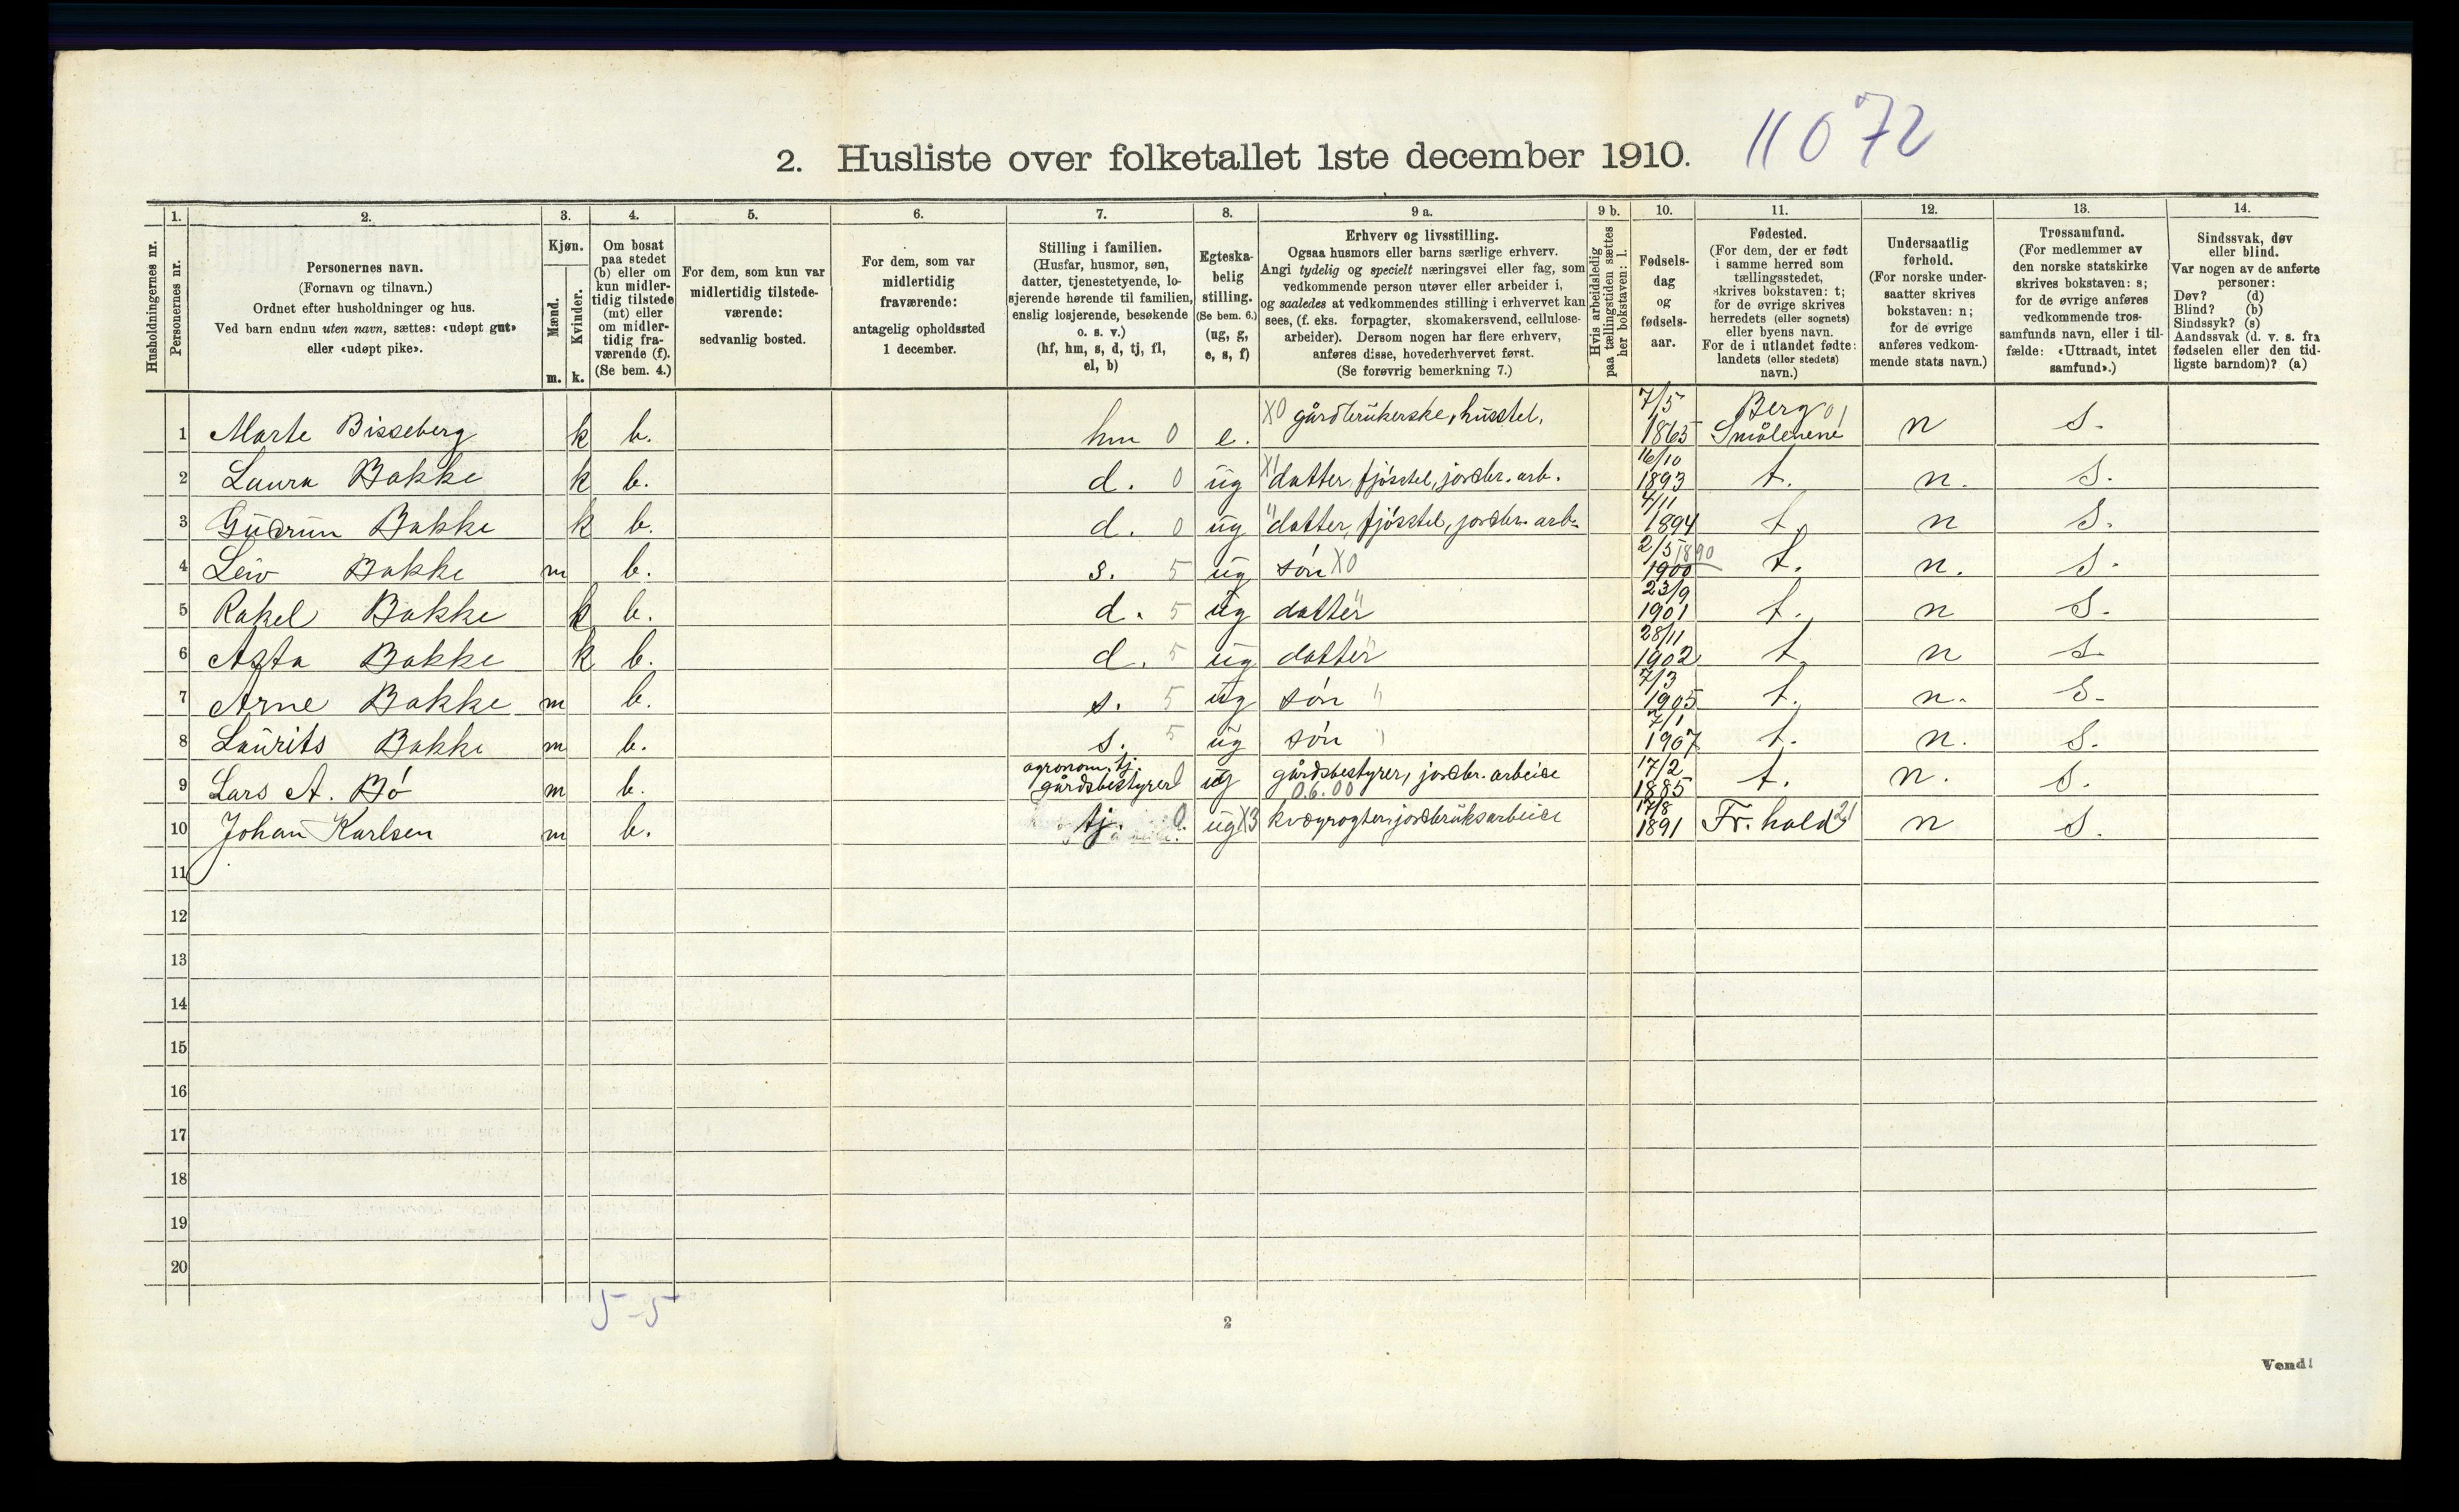 11072
2. Husliste over folketallet 1ste december 1910.
1. 2. 3. 4. 5. 6. 7. 8. 9 a. 9 b. 10. 11. 12. 13. 14.
Husholdningernes nr.
Personernes nr.
Personernes navn.
(Fornavn og tilnavn.)
Ordnet efter husholdninger og hus.
Ved barn endnu uten navn, sættes: «udøpt gut»
eller «udøpt pike».
Kjøn.
Mænd.
Kvinder.
m. k.
Om bosat
paa stedet
(b) eller om
kun midler-
tidig tilstede
(mt) eller
om midler-
tidig fra-
værende (f).
(Se bem. 4.)
For dem, som kun var
midlertidig tilstede-
værende:
sedvanlig bosted.
For dem, som var
midlertidig
fraværende:
antagelig opholdssted
1 december.
Stilling i familien.
(Husfar, husmor, søn,
datter, tjenestetyende, lo-
sjerende hørende til familien,
enslig losjerende, besøkende
o. s. v.)
(hf, hm, s, d, tj, fl,
el, b)
Egteska-
belig
stilling.
(Se bem. 6.)
(ug, g,
e, s, f)
Erhverv og livsstilling.
Ogsaa husmors eller barns særlige erhverv.
Angi tydelig og specielt næringsvei eller fag, som
vedkommende person utøver eller arbeider i,
og saaledes at vedkommendes stilling i erhvervet kan
sees, (f. eks. forpagter, skomakersvend, cellulose-
arbeider). Dersom nogen har flere erhverv,
anføres disse, hovederhvervet først.
(Se forøvrig bemerkning 7.)
Hvis arbeidsledig
paa tællingstiden sættes
her bokstaven: l.
Fødsels-
dag
og
fødsels-
aar.
Fødested.
(For dem, der er født
i samme herred som
tællingsstedet,
skrives bokstaven: t;
for de øvrige skrives
herredets (eller sognets)
eller byens navn.
For de i utlandet fødte:
landets (eller stedets)
navn.)
Undersaatlig
forhold.
(For norske under-
saatter skrives
bokstaven: n;
for de øvrige
anføres vedkom-
mende stats navn.)
Trossamfund.
(For medlemmer av
den norske statskirke
skrives bokstaven: s;
for de øvrige anføres
vedkommende tros-
samfunds navn, eller i til-
fælde: «Uttraadt, intet
samfund».)
Sindssvak, døv
eller blind.
Var nogen av de anførte
personer:
Døv? (d)
Blind? (b)
Sindssyk? (s)
Aandssvak (d. v. s. fra
fødselen eller den tid-
ligste barndom)? (a)
1 Marte Bisseberg k b. hm 0 e. X0 gårdbrukerske, husstel, 7/5 1863 Berg 01 Smålenene n s.
2 Laura Bakke k b. d. 0 ug X1 datter, fjösstel, jordbr. arb. 16/10 1893 t. n. s.
3 Gudrun Bakke k b. d. 0 ug " datter, fjösstel, jordbr. arb. 4/11 1894 t. n s.
4 Leiv Bakke m b. s. 5 ug sön X0 2/5 1890 1900 t. n. s.
5 Rakel Bakke k b. d. 5 ug datter " 23/9 1901 t. n s.
6 Asta Bakke k b. d. 5 ug datter " 28/11 1902 t. n s.
7 Arne Bakke m b. s. 5 ug sön " 7/3 1905 t. n. s.
8 Laurits Bakke m b. s. 5 ug sön " 7/1 1907 t. n. s.
9 Lars A. Bö m b. agronom, tj. gårdsbestyrer ug gårdsbestyrer, jordbr. arbeide 0.6.00 17/2 1885 t. n. s.
10 Johan Karlsen m b. tj. 0. ug X3 kvægrogter, jordbruksarbeide 17/8 1891 Fr. hald 21 n s.
11
12
13
14
15
16
17
18
19
20
5-5
2
Vend!